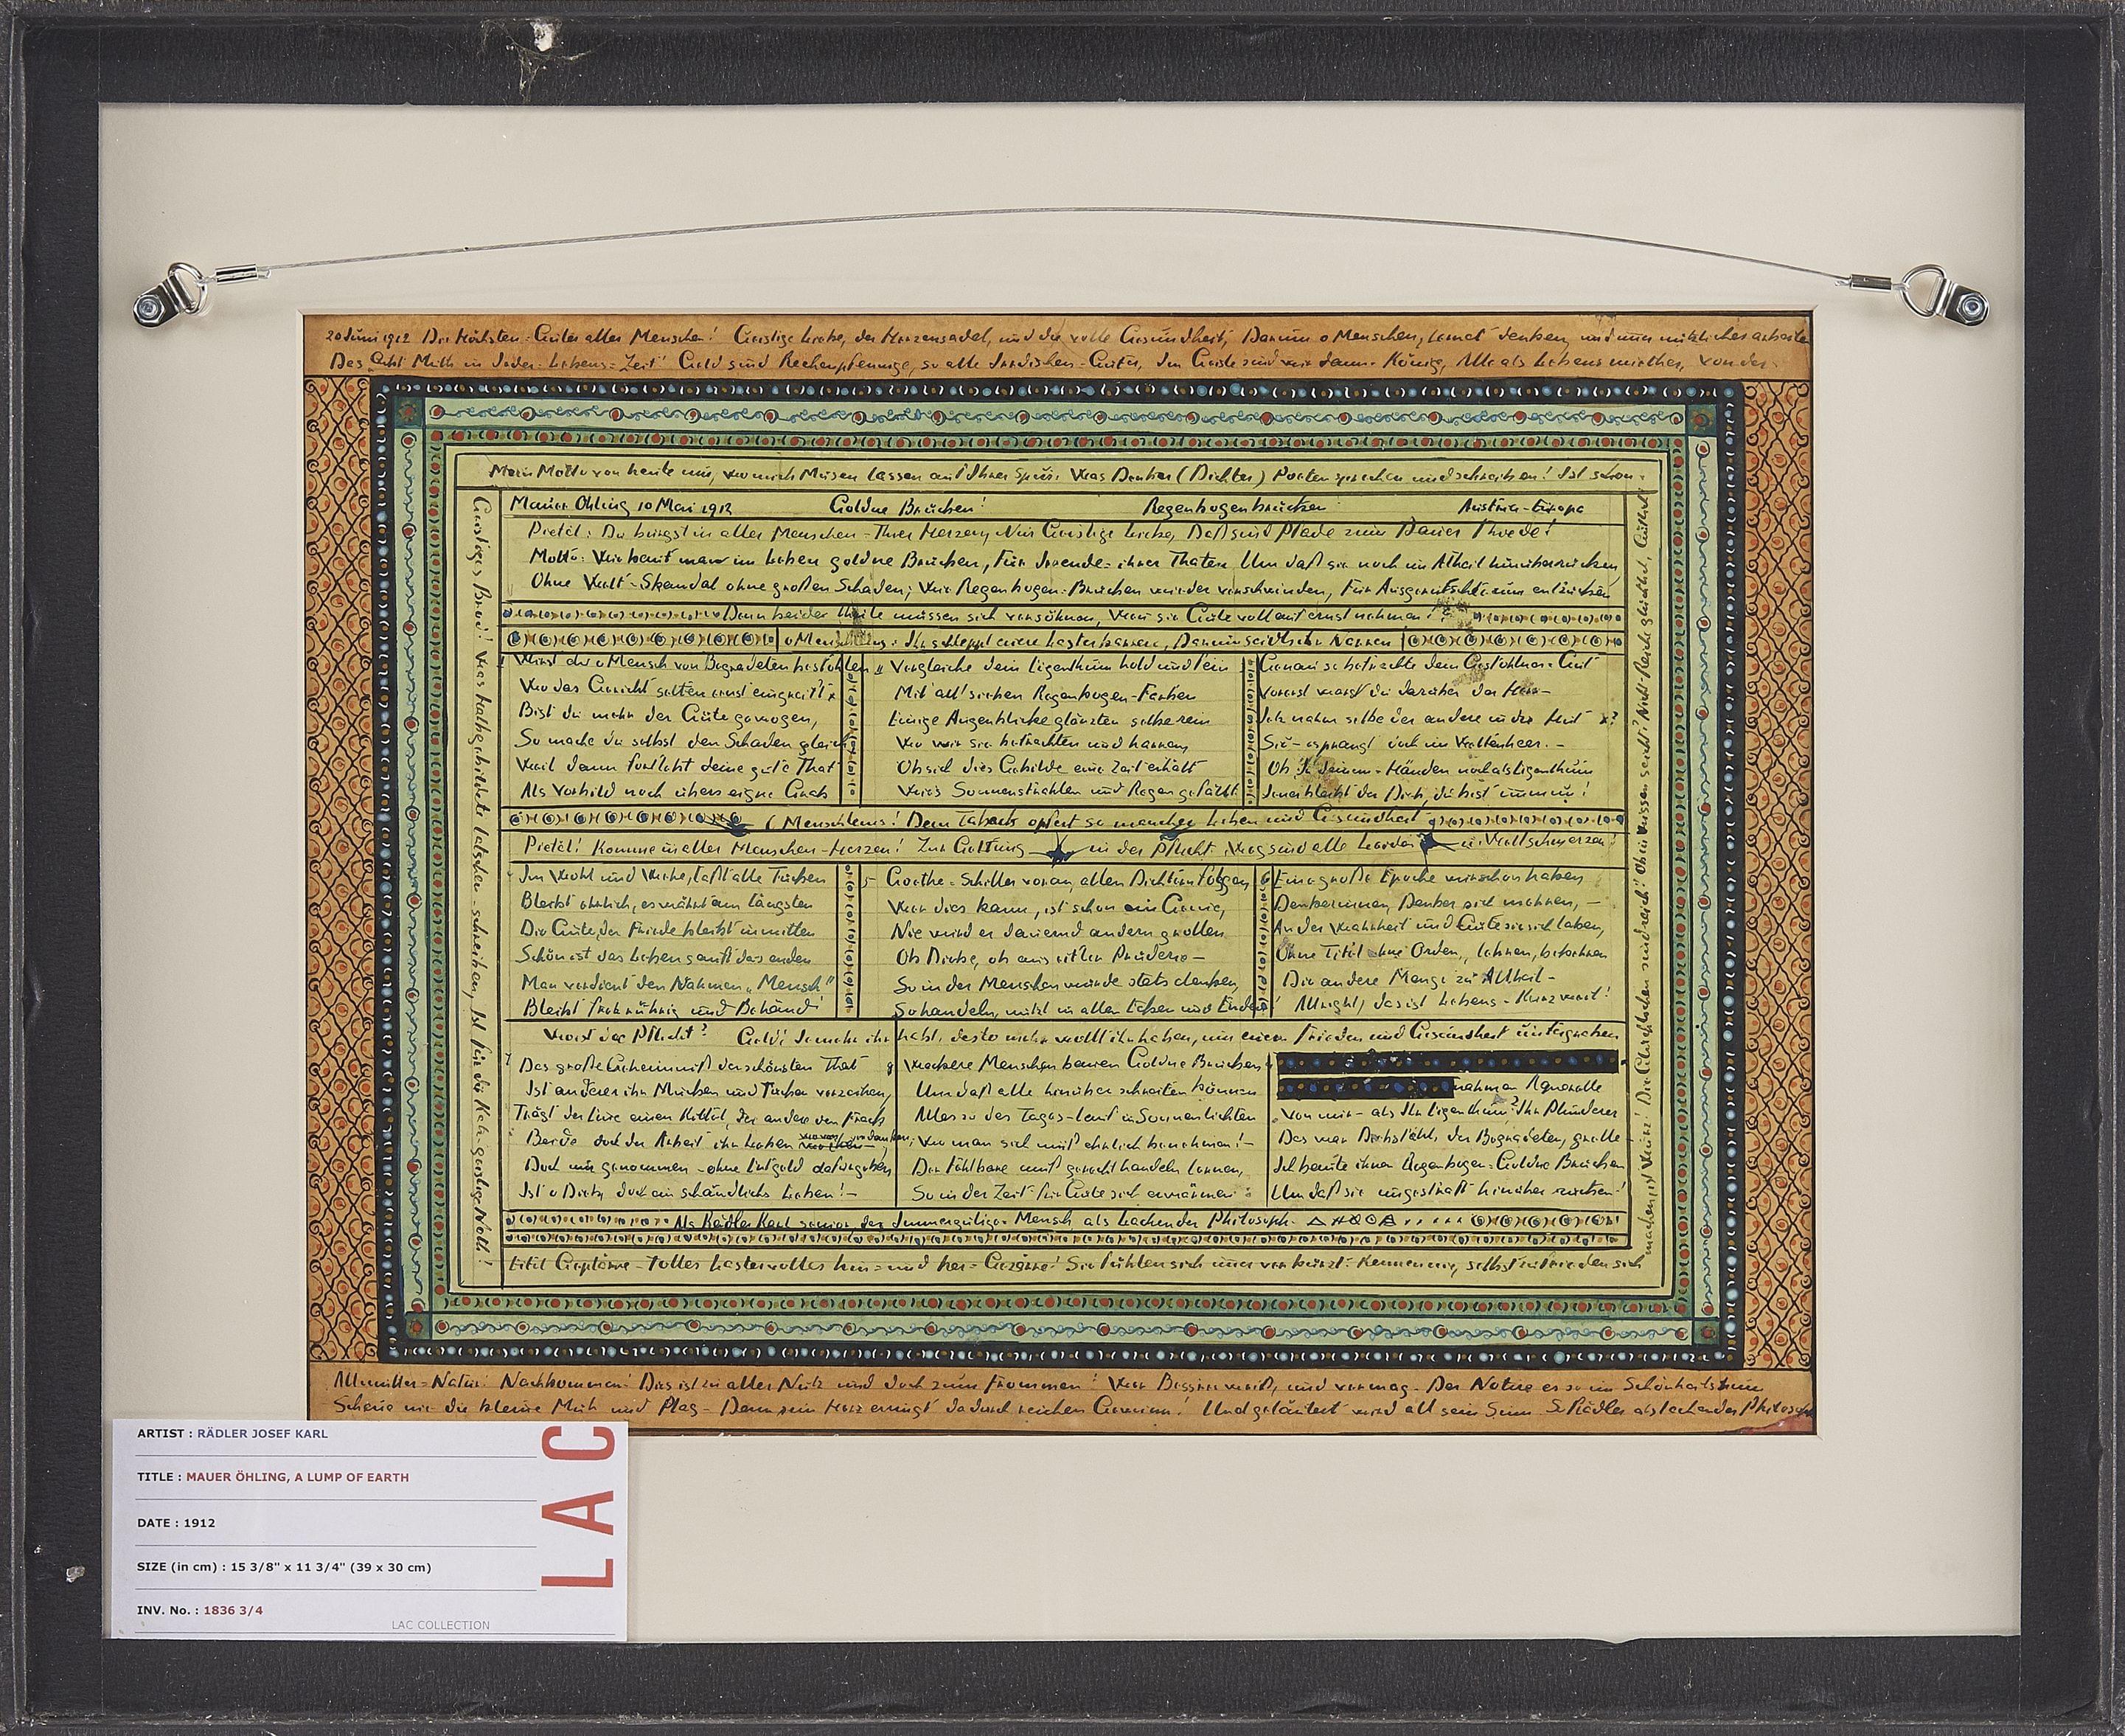 20 Juni 1912 Die Höchsten-Güter aller Menschen! Geistige Liebe, der Herzensadel, und die volle Gesundheit, Darum o Menschen, lernet denken, und nur nützliches arbeiten
Des Lebens-Zeit! Geld sind Rechenpfennige, so alle Irrdischen-Güter, Im Geiste sind wir dann Könige, Alle als Lebens von der
Mein Motto von heute nur, wo mich Musen lassen auf Ihrer Spur. Was Denker (Dichter) Poeten sprechen und schreiben! Ist schon
Mauer Öhling 10 Mai 1912 Goldne Brücken! Regenbogenbrücken Austria-Europa
Pietät: Du bringst in aller Menschen-Ihrer Herzen, Nur Geistige Liebe, Daß sind Pfade zum Dauer Friede!
Motto: Wie baut man im Leben goldne Brücken, Für Irrende-ihrer Thaten Um daß sie noch im Altheil hinüberrücken,
Ohne Welt-Skandal ohne großen Schaden; Wie Regenbogen-Brücken wieder verschwinden, Für
Denn beider Theile müssen sich versöhnen, Wenn sie Güte voll auf ernst nehmen!
Ihr schleppt eure Lasterkarren, Darum seid Ihr Narren
Wirst du o Mensch von Begnadeten bestohlen
Wo das Gericht selten ernst eingreift
Bist du mehr der Güte gewogen,
So mache du selbst den Schaden gleich
Weil dann fortlebt deine gute That
Als Vorbild noch übers eigne Grab
Vergleiche dein Eigenthum hold und fein
Mit all' sieben Regenbogen-Farben
Einige Augenblicke glänzten selbe rein
Wo wir sie betrachten und harren,
Ob sich dies Gebilde eine Zeit erhält
Wie's Sonnenstrahlen und Regen gefällt
Genau so betrachte dein Gestohlnes-Gut
Vorerst warst du darüber der Herr-
nahm selbe der andere in die Hut
im Weltenheer.-
Ob in deinen-Händen noch als Eigenthum
( Menschleins! Dem Tabak opfert so mancher Leben und Gesundheit
Pietät! Komme in aller Menschen-Herzen! Zur Geltung in der Pflicht, Weg sind alle Weltschmerzen!
Im Wohl und Wehe, laßt alle Tücken
Bleibt ehrlich, es währt am längsten
Die Güte, der Friede bleibt inmitten
Schön ist das Leben sanft das enden
Man verdient den Nahmen „Mensch"
Bleibt und Behänd!
5 Goethe-Schiller voran, allen Dichtern folgen
Wer dies kann, ist schon ein Genie,
Nie wird er dauernd andern grollen
Ob Diebe, ob aus eitler Prüderie-
So in der Menschenwürde stets denken,
So handeln, nützt in allen Ecken und Enden!
6 Eine große Epoche wir schon haben
Denkerinnen, Denker sich mehren, -
An der Wahrheit und Güte sie sich laben,
Ohne Titel ohne Orden, lehren, bekehren
Die andere Menge zu Altheil-
Allright, das ist Lebens-Kurzweil!
Wo ist die Pflicht? Geld! Je mehr ihr habt, desto mehr wollt ihr haben, um euren Frieden und Gesundheit untergraben
7 Das große Geheimniß der schönsten That
Ist anderer ihr Mucken und Tücken verzeihen,
Trägt der Eine einen Kittel, der andere den Frack
Beide doch der Arbeit ihr Leben
Doch nur genommen-ohne Entgeld dafürgeben
Ist o Diebe doch ein schändlichs Leben!-
8 Wackere Menschen bauen Goldne Brücken
Um daß alle hinüber schreiten können
Alles so des Tages-lauf in Sonnenlichten
Wo man sich muß ehrlich benehmen!-
Der Fühlbare muß gerecht handeln lernen,
So in der Zeit für Güte sich erwärmen:
nahmen Aquarelle
Von mir-als Ihr Eigenthum? Ihr Plünderer
Das war Diebstähl, der Begnadeten, grolle-
Ich baute ihnen Regenbogen-Goldne Brücken
Um daß sie ungestraft hinüber rücken!
Als Rädler Karl senior, der Immergütige-Mensch als Lachender Philosoph.
Eitel Gigerl Tolles lastervolles hin-und her- Sie fühlen sich nur verkürzt. Kennen nie, selbst zufrieden sich
Geistiges Brod! Was halbgebildete falschen-schreiben, Ist für die Katz-geistige-Noth!
machen! ist Kurz! Die Ehrlichen sind reich! Ob im wissen seicht? Nicht Reiche glücklich,
Allmutter-Natur! Nachkommen! Dies ist zu aller Nutz und doch zum frommen! Wer Bessres weiß, und vermag- Der Nature es so im Schönheitssinn
Scheue nie die kleine Müh und Plag- Denn sein Herz erringt dadurch reichen Gewinn! Und geläutert wird all sein Sinn Rädler als lachender Philosoph
ARTIST : RÄDLER JOSEF KARL
TITLE : MAUER ÖHLING, A LUMP OF EARTH
DATE : 1912
SIZE (in cm) : 15 3/8" x 11 3/4" (39 x 30 cm)
INV. No. : 1836 3/4
LAC COLLECTION
LAC